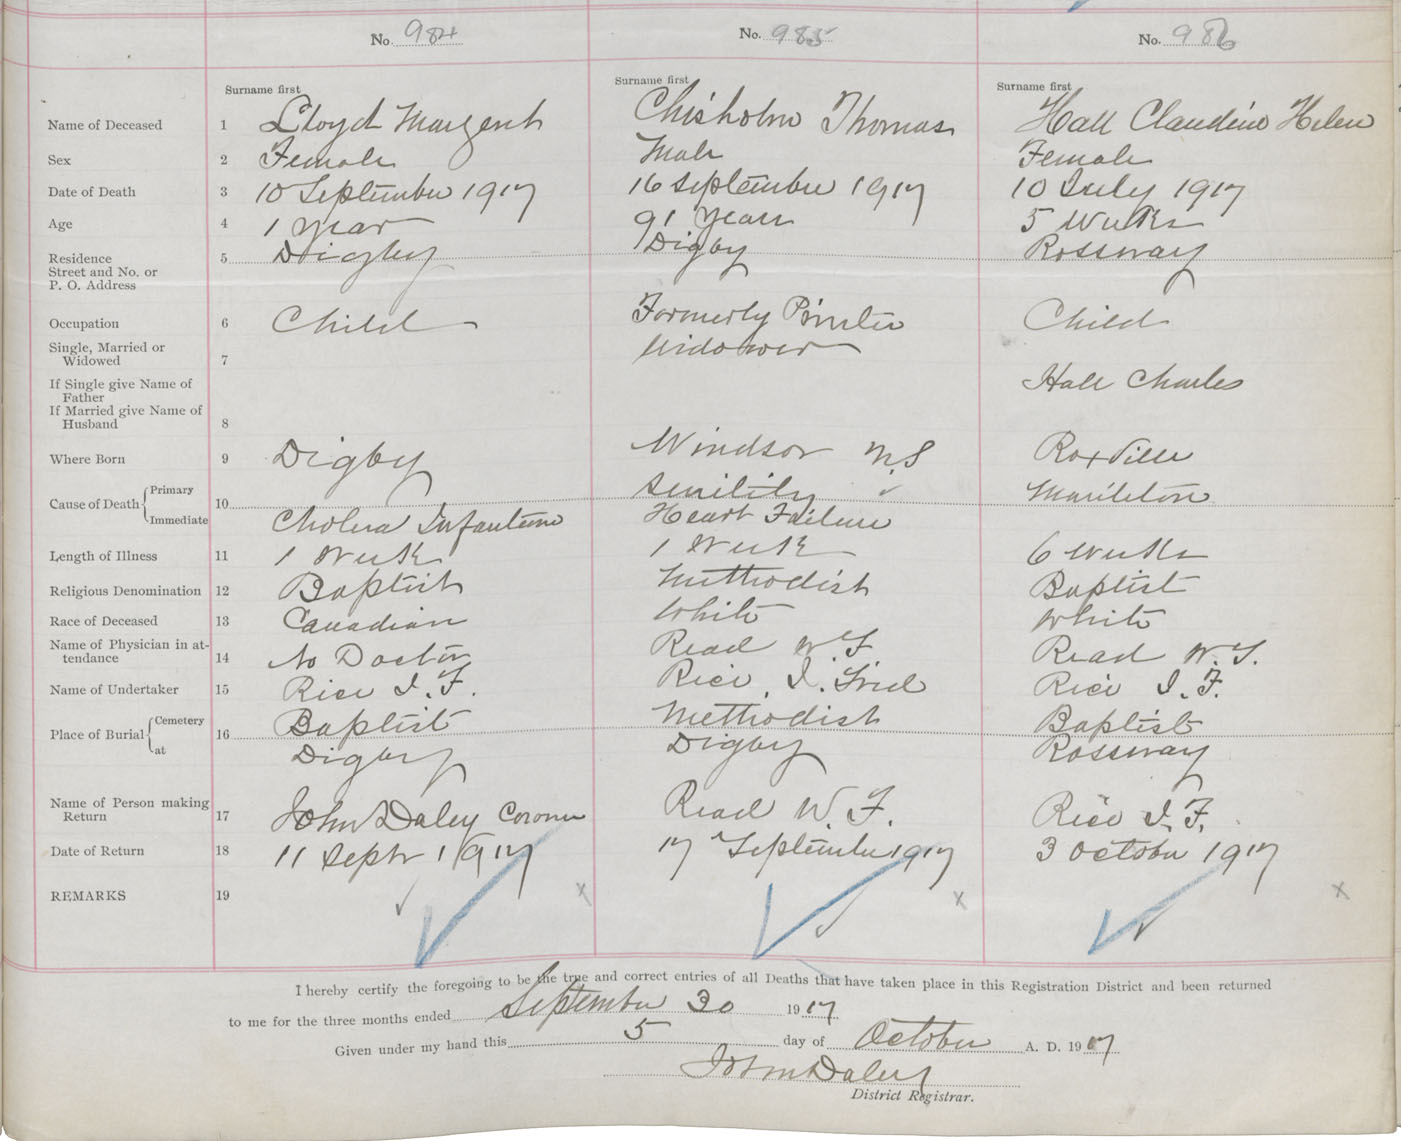 No. 984 No. 985 No. 986
Surname first Surname first Surname first
Name of Deceased 1 Lloyd Margent Chisholm Thomas Hall Claudine Helen
Sex 2 Female Male Female
Date of Death 3 10 September 1917 16 September 1917 10 July 1917
Age 4 1 year 91 Years 5 Weeks
Residence 5 Digby Digby Rossway
Street and No. or
P. O. Address
Occupation 6 Child Formerly Printer Child
Single, Married or
Widowed 7 Widower
If Single give Name of Hall Charles
Father
If Married give Name of
Husband 8
Where Born 9 Digby Windsor N.S Roxville
Cause of Death Primary 10 Senility
Immediate Cholera Infantum Heart Failure
Length of Illness 11 1 Week 1 Week 6 Weeks
Religious Denomination 12 Baptist Methodist Baptist
Race of Deceased 13 Canadian White White
Name of Physician in at-
tendance 14 No Doctor Read W F Read W. F.
Name of Undertaker 15 Rice I. F. Rice, I. Fred Rice I. F.
Place of Burial Cemetery 16 Baptist Methodist Baptist
at Digby Digby Rossway
Name of Person making
Return 17 John Daley Coroner Read W. F. Rice I. F.
Date of Return 18 11 Septr 1917 17 September 1917 3 October 1917
REMARKS 19 x x x
I hereby certify the foregoing to be the true and correct entries of all Deaths that have taken place in this Registration District and been returned
to me for the three months ended September 30 1917
Given under my hand this 5 day of October A. D. 1917
John Daley
District Registrar.